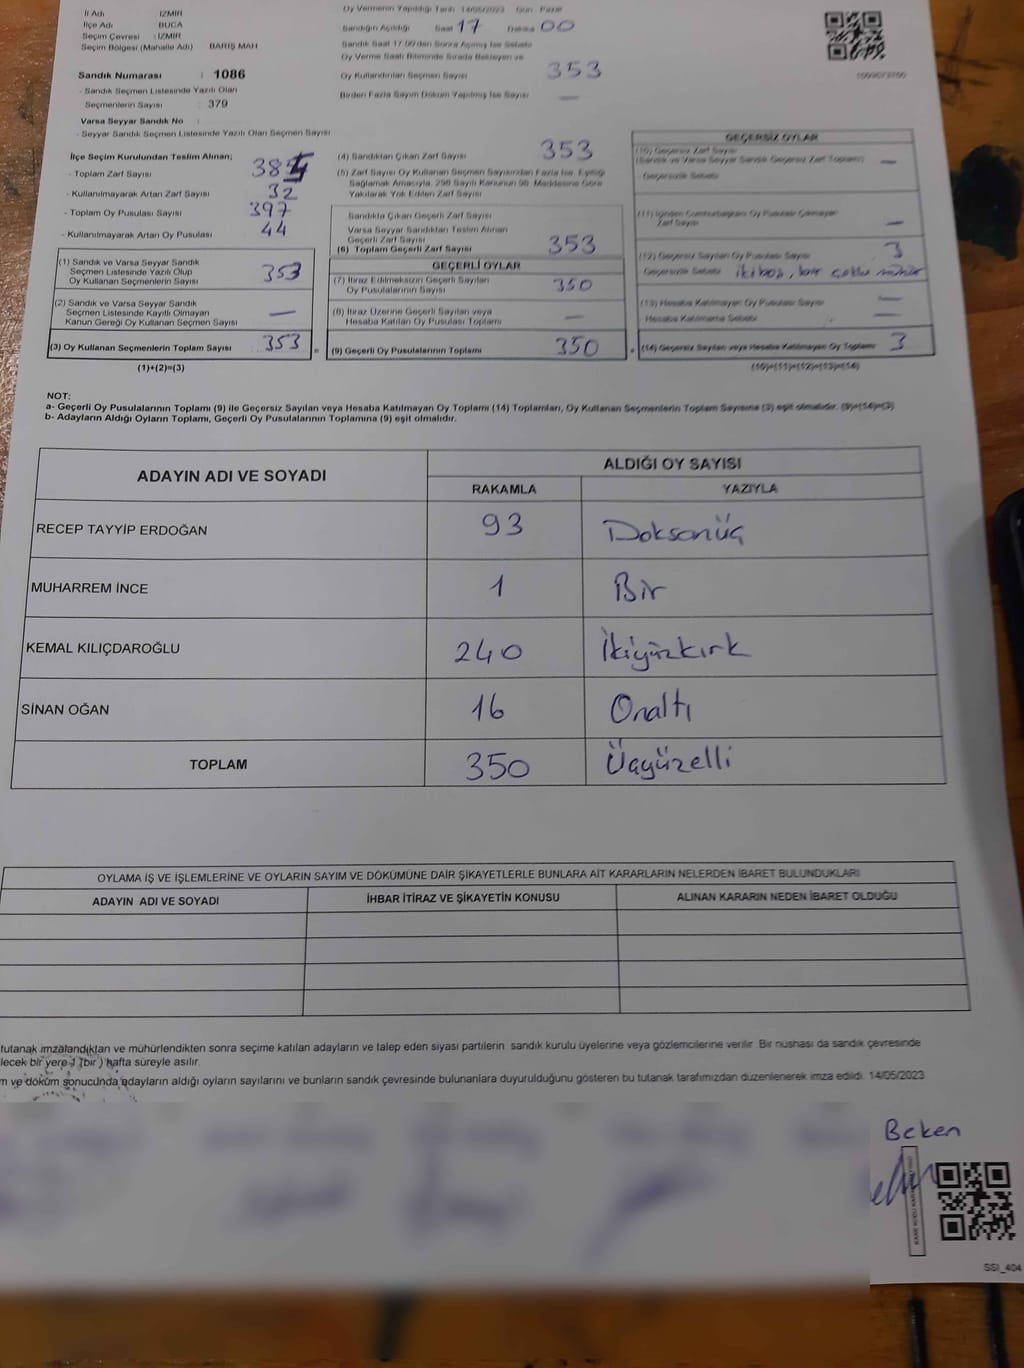 İl Adı İZMİR
İlçe Adı BUCA
Seçim Çevresi : İZMİR
Seçim Bölgesi (Mahalle Adı) BARIŞ MAH
Sandık Numarası : 1086
- Sandık Seçmen Listesinde Yazılı Olan
Seçmenlerin Sayısı : 379
Varsa Seyyar Sandık No :
- Seyyar Sandık Seçmen Listesinde Yazılı Olan Seçmen Sayısı
Oy Vermenin Yapıldığı Tarih 14/05/2023 Gün Pazar
Sandığın Açıldığı Saat 17 Dakika 00
Sandık Saat 17.00'den Sonra Açılmış İse Sebebi
Oy Verme Saati Bitiminde Sırada Bekleyen ve
Oy Kullandırılan Seçmen Sayısı 353
Birden Fazla Sayım Döküm Yapılmış İse Sayısı —
İlçe Seçim Kurulundan Teslim Alınan;
- Toplam Zarf Sayısı
- Kullanılmayarak Artan Zarf Sayısı 32
- Toplam Oy Pusulası Sayısı 397
- Kullanılmayarak Artan Oy Pusulası 44
(1) Sandık ve Varsa Seyyar Sandık
Seçmen Listesinde Yazılı Olup
Oy Kullanan Seçmenlerin Sayısı 353
(2) Sandık ve Varsa Seyyar Sandık
Seçmen Listesinde Kayıtlı Olmayan
Kanun Gereği Oy Kullanan Seçmen Sayısı —
(3) Oy Kullanan Seçmenlerin Toplam Sayısı 353 =
(1)+(2)=(3)
(4) Sandıktan Çıkan Zarf Sayısı 353
(5) Zarf Sayısı Oy Kullanan Seçmen Sayısından Fazla İse, Eşitliği
Sağlamak Amacıyla, 298 Sayılı Kanunun 98. Maddesine Göre
Yakılarak Yok Edilen Zarf Sayısı
Sandıkta Çıkan Geçerli Zarf Sayısı
Varsa Seyyar Sandıktan Teslim Alınan
Geçerli Zarf Sayısı
(6) Toplam Geçerli Zarf Sayısı 353
GEÇERLİ OYLAR
(7) İtiraz Edilmeksizin Geçerli Sayılan
Oy Pusulalarının Sayısı 350
(8) İtiraz Üzerine Geçerli Sayılan veya
Hesaba Katılan Oy Pusulası Toplamı —
(9) Geçerli Oy Pusulalarının Toplamı 350 +
GEÇERSİZ OYLAR
(10) Geçersiz Zarf Sayısı
(Sandık ve Varsa Seyyar Sandık Geçersiz Zarf Toplamı) —
- Geçersizlik Sebebi
(11) İçinden Cumhurbaşkanı Oy Pusulası Çıkmayan
Zarf Sayısı —
(12) Geçersiz Sayılan Oy Pusulası Sayısı 3
Geçersizlik Sebebi iki boş, bir çoklu mühür
(13) Hesaba Katılmayan Oy Pusulası Sayısı —
- Hesaba Katılmama Sebebi —
(14) Geçersiz Sayılan veya Hesaba Katılmayan Oy Toplamı 3
(10)+(11)+(12)+(13)=(14)
NOT:
a- Geçerli Oy Pusulalarının Toplamı (9) ile Geçersiz Sayılan veya Hesaba Katılmayan Oy Toplamı (14) Toplamları, Oy Kullanan Seçmenlerin Toplam Sayısına (3) eşit olmalıdır. (9)+(14)=(3)
b- Adayların Aldığı Oyların Toplamı, Geçerli Oy Pusulalarının Toplamına (9) eşit olmalıdır.
ADAYIN ADI VE SOYADI ALDIĞI OY SAYISI
RAKAMLA YAZIYLA
RECEP TAYYİP ERDOĞAN 93 Doksanüç
MUHARREM İNCE 1 Bir
KEMAL KILIÇDAROĞLU 240 İkiyüzkırk
SİNAN OĞAN 16 Onaltı
TOPLAM 350 Üçyüzelli
OYLAMA İŞ VE İŞLEMLERİNE VE OYLARIN SAYIM VE DÖKÜMÜNE DAİR ŞİKAYETLERLE BUNLARA AİT KARARLARIN NELERDEN İBARET BULUNDUKLARI
ADAYIN ADI VE SOYADI İHBAR İTİRAZ VE ŞİKAYETİN KONUSU ALINAN KARARIN NEDEN İBARET OLDUĞU
tutanak imzalandıktan ve mühürlendikten sonra seçime katılan adayların ve talep eden siyasi partilerin sandık kurulu üyelerine veya gözlemcilerine verilir. Bir nüshası da sandık çevresinde
lecek bir yere 1 (bir) hafta süreyle asılır.
m ve döküm sonucunda adayların aldığı oyların sayılarını ve bunların sandık çevresinde bulunanlara duyurulduğunu gösteren bu tutanak tarafımızdan düzenlenerek imza edildi. 14/05/2023
Beken
SSI_404